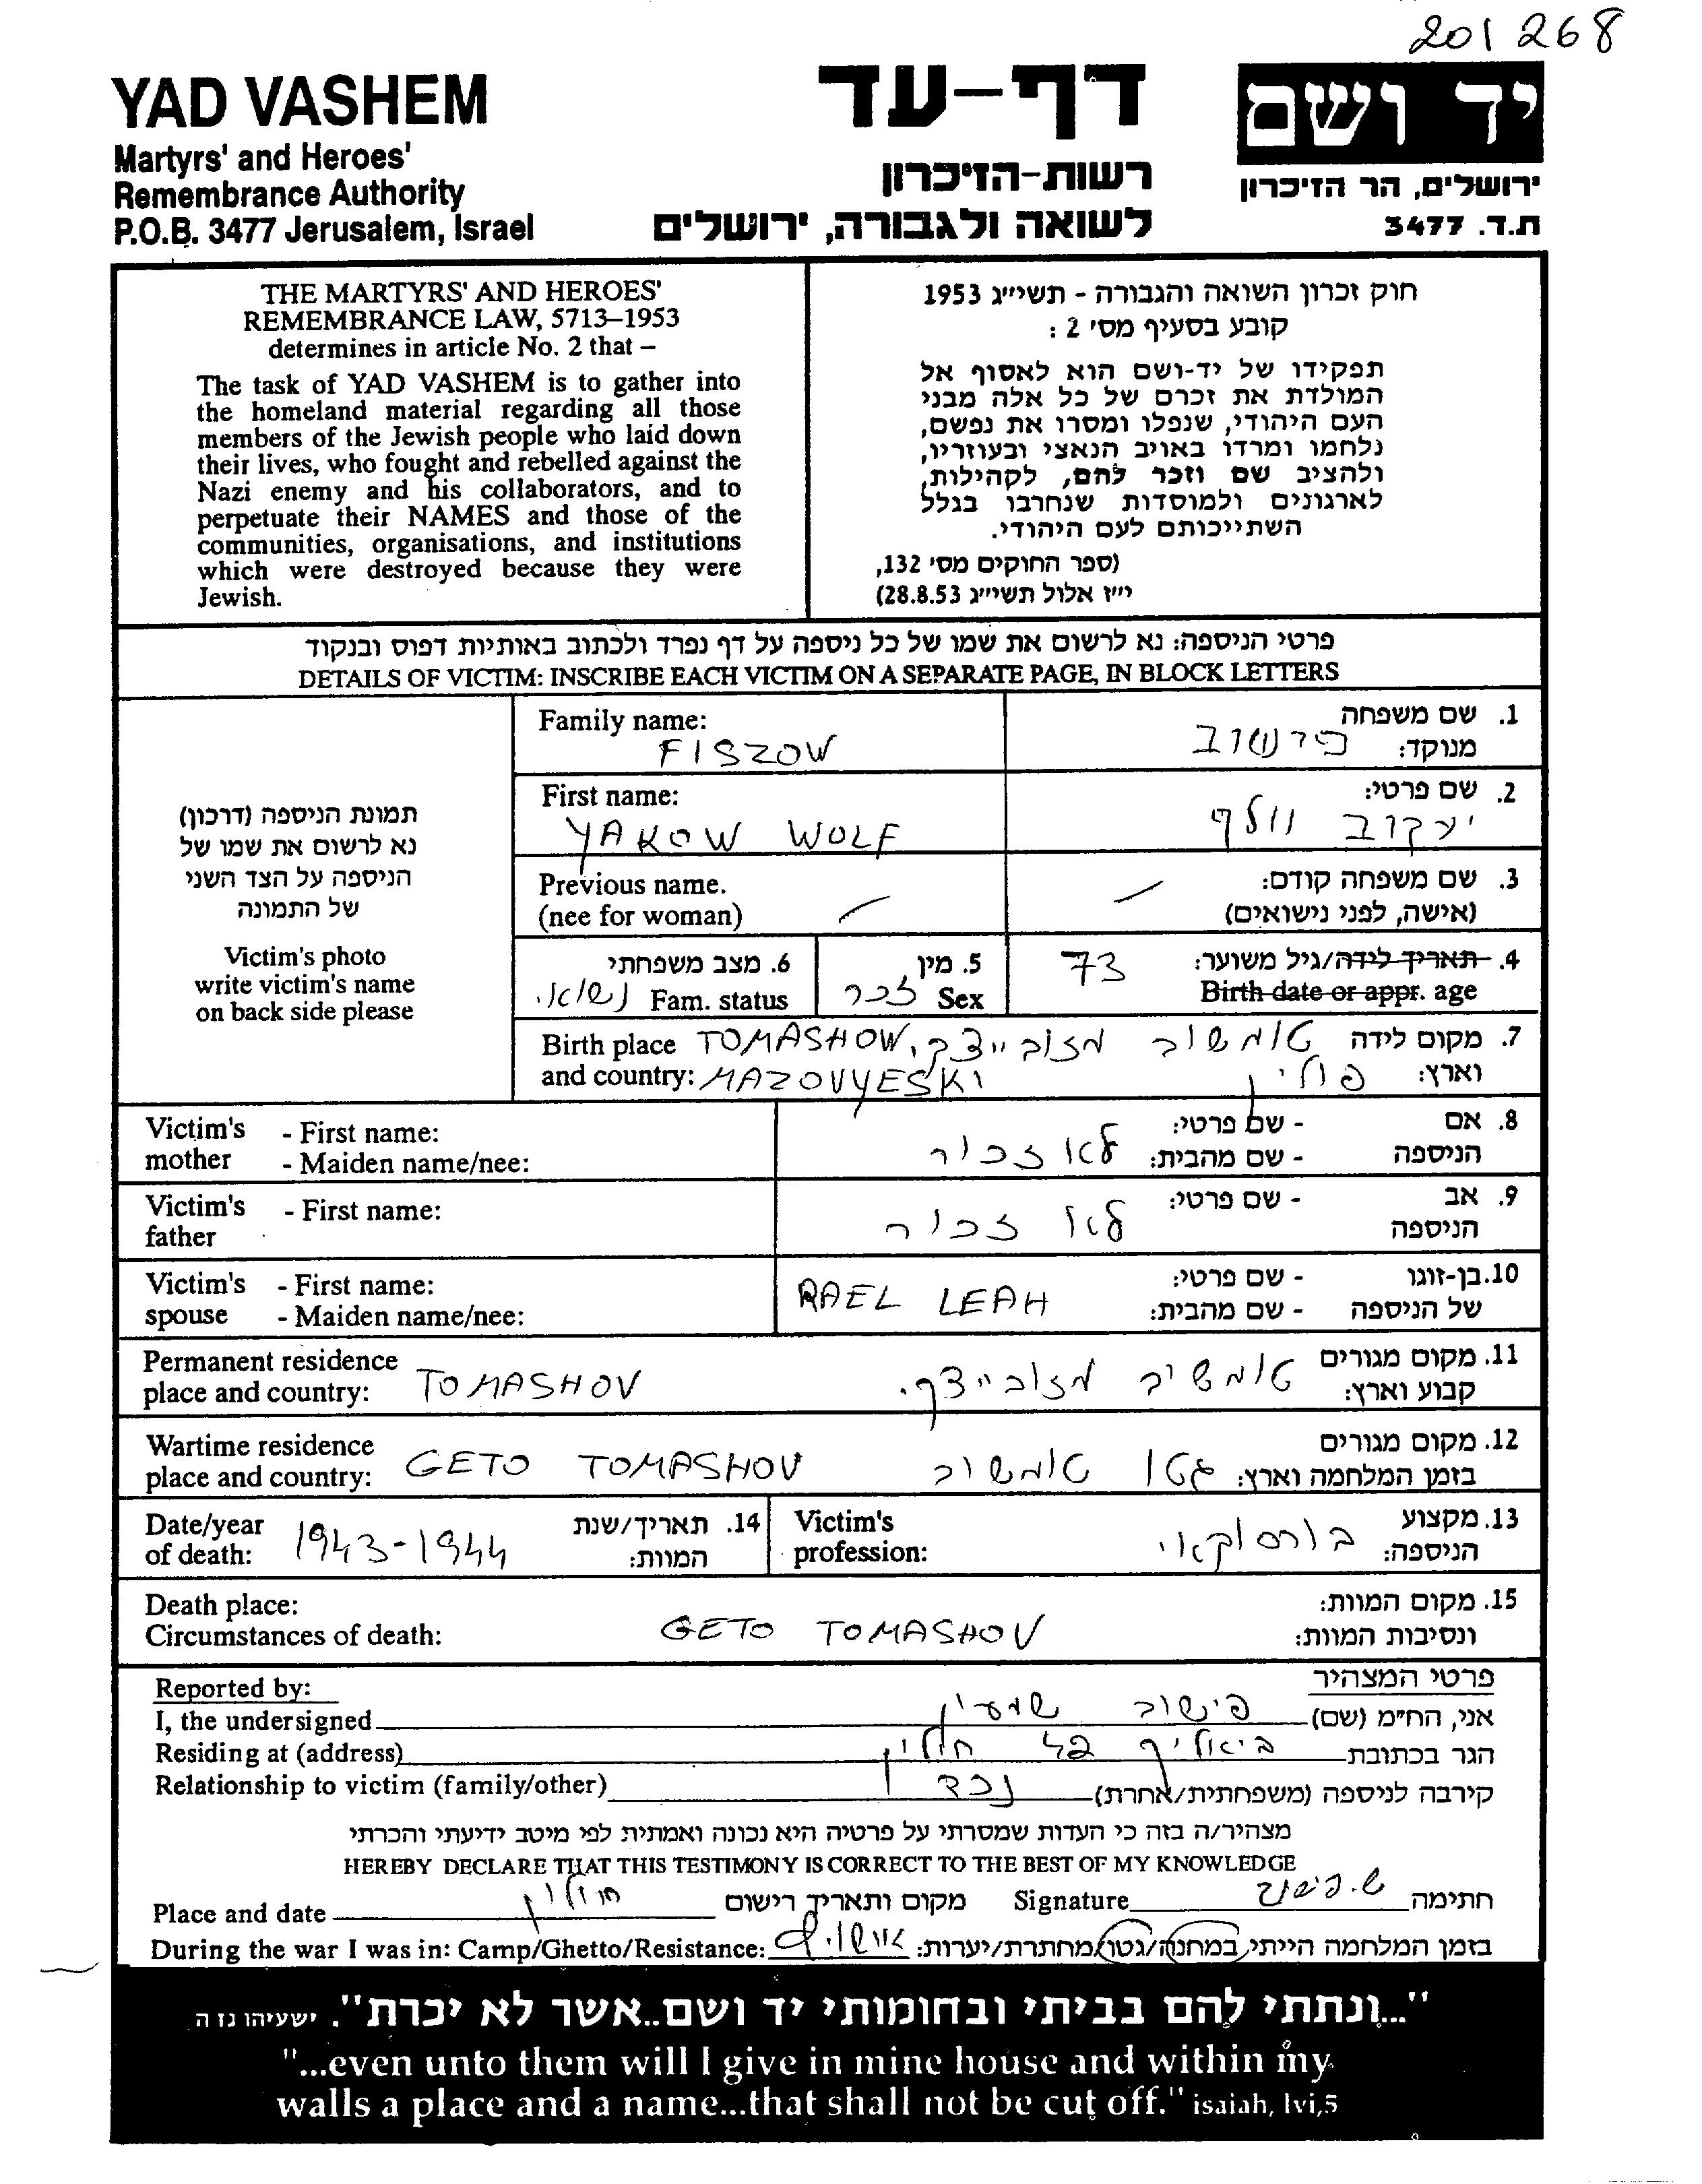 201 268
YAD VASHEM
Martyrs' and Heroes'
Remembrance Authority
P.O.B. 3477 Jerusalem, Israel
דף-עד
רשות-הזיכרון
לשואה ולגבורה, ירושלים
יד ושם
ירושלים, הר הזיכרון
ת.ד. 3477
THE MARTYRS' AND HEROES'
REMEMBRANCE LAW, 5713–1953
determines in article No. 2 that –
The task of YAD VASHEM is to gather into
the homeland material regarding all those
members of the Jewish people who laid down
their lives, who fought and rebelled against the
Nazi enemy and his collaborators, and to
perpetuate their NAMES and those of the
communities, organisations, and institutions
which were destroyed because they were
Jewish.
חוק זכרון השואה והגבורה - תשי״ג 1953
קובע בסעיף מס׳ 2 :
תפקידו של יד-ושם הוא לאסוף אל
המולדת את זכרם של כל אלה מבני
העם היהודי, שנפלו ומסרו את נפשם,
נלחמו ומרדו באויב הנאצי ובעוזריו,
ולהציב שם וזכר להם, לקהילות,
לארגונים ולמוסדות שנחרבו בגלל
השתייכותם לעם היהודי.
(ספר החוקים מס׳ 132,
י״ז אלול תשי״ג 28.8.53)
פרטי הניספה: נא לרשום את שמו של כל ניספה על דף נפרד ולכתוב באותיות דפוס ובנקוד
DETAILS OF VICTIM: INSCRIBE EACH VICTIM ON A SEPARATE PAGE, IN BLOCK LETTERS
תמונת הניספה (דרכון)
נא לרשום את שמו של
הניספה על הצד השני
של התמונה
Victim's photo
write victim's name
on back side please
Family name:
FISZOW
1. שם משפחה
מנוקד: פישוב
First name:
YAKOW WOLF
2. שם פרטי:
יעקוב וולף
Previous name.
(nee for woman) –
3. שם משפחה קודם: –
(אישה, לפני נישואים)
6. מצב משפחתי
Fam. status נשוא.
5. מין
Sex זכר
4. תאריך לידה/גיל משוער: 73
Birth date or appr. age
Birth place TOMASHOW,
and country: MAZOVYESKI
7. מקום לידה טומשוב מזוביייצק
וארץ: פולין
Victim's - First name:
mother - Maiden name/nee:
8. אם - שם פרטי:
הניספה - שם מהבית: לא זכור
Victim's - First name:
father
9. אב - שם פרטי:
הניספה לא זכור
Victim's - First name:
spouse - Maiden name/nee:
RAEL LEAH
10. בן-זוגו - שם פרטי:
של הניספה - שם מהבית:
Permanent residence
place and country: TOMASHOV
11. מקום מגורים
קבוע וארץ: טומשוב מזוביייצק.
Wartime residence
place and country: GETO TOMASHOV
12. מקום מגורים
בזמן המלחמה וארץ: גטו טומשוב
Date/year
of death: 1943-1944
14. תאריך/שנת
המוות:
Victim's
profession:
13. מקצוע
הניספה: בורסקאי
Death place:
Circumstances of death:
GETO TOMASHOV
15. מקום המוות:
ונסיבות המוות:
Reported by:
פרטי המצהיר
I, the undersigned
אני, הח״מ (שם) פישוב שמעון
Residing at (address)
הגר בכתובת ביאליק חולון
Relationship to victim (family/other)
קירבה לניספה (משפחתית/אחרת) נכד
מצהיר/ה בזה כי העדות שמסרתי על פרטיה היא נכונה ואמתית לפי מיטב ידיעתי והכרתי
HEREBY DECLARE THAT THIS TESTIMONY IS CORRECT TO THE BEST OF MY KNOWLEDGE
Place and date חולון מקום ותאריך רישום
Signature ש. פישוב חתימה
During the war I was in: Camp/Ghetto/Resistance:
בזמן המלחמה הייתי במחנה/גטו/מחתרת/יערות: אושוויץ
"...ונתתי להם בביתי ובחומותי יד ושם..אשר לא יכרת". ישעיהו נו ה
"...even unto them will I give in mine house and within my
walls a place and a name...that shall not be cut off." isaiah, lvi,5